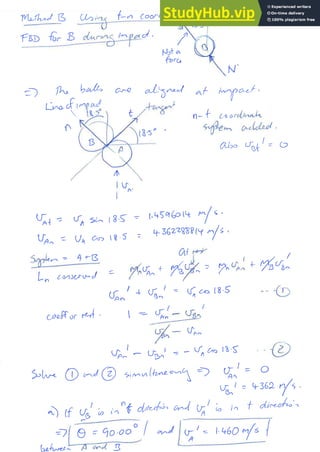 Method B Using t-n coor
FBD for B during impact.
StudyHub.vip
Not a
force
B
N
=> The balls are aligned at impact.
Line of impact
tangent
18.5°
n
t
18.5°
B
A
n-t coordinate
system added.
also v_Bt' = 0
v_A
v_At = v_A sin 18.5 = 1.4596014 m/s.
v_An = v_A cos 18.5 = 4.362288814 m/s.
System = A+B
L_n conserved = m_A v_An + m_B v_Bn = m_A v_An' + m_B v_Bn'
v_An' + v_Bn' = v_A cos 18.5 ... ①
coeff of rest. 1 = v_An' - v_Bn' / v_Bn - v_An
v_An' - v_Bn' = - v_A cos 18.5 ... ②
Solve ① and ② simultaneously => v_An' = 0
v_Bn' = 4.362 m/s.
a) If v_B' is in n direction and v_A' is in t direction
=> θ = 90.00° and v_A' = 1.460 m/s
between A and B